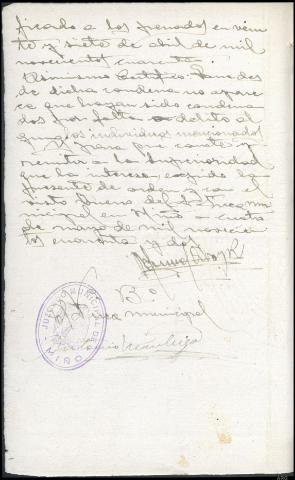 ficado a los penados en vein
te y siete de abril de mil
novecientos cuarenta.
Asimismo Certifico: Que des
de dicha condena no apare
ce que hayan sido condena
dos por falta o delito al
gunos individuos mencionados
Y para que conste y
remitir a la Superioridad
que la interesa, expido la
presente de orden y con el
visto bueno del Sr Juez mu
nicipal en Miño a cuatro
de mayo de mil novecien
tos cuarenta y dos
Vº Bº
El Juez municipal
JUZGADO MUNICIPAL DE
MIÑO